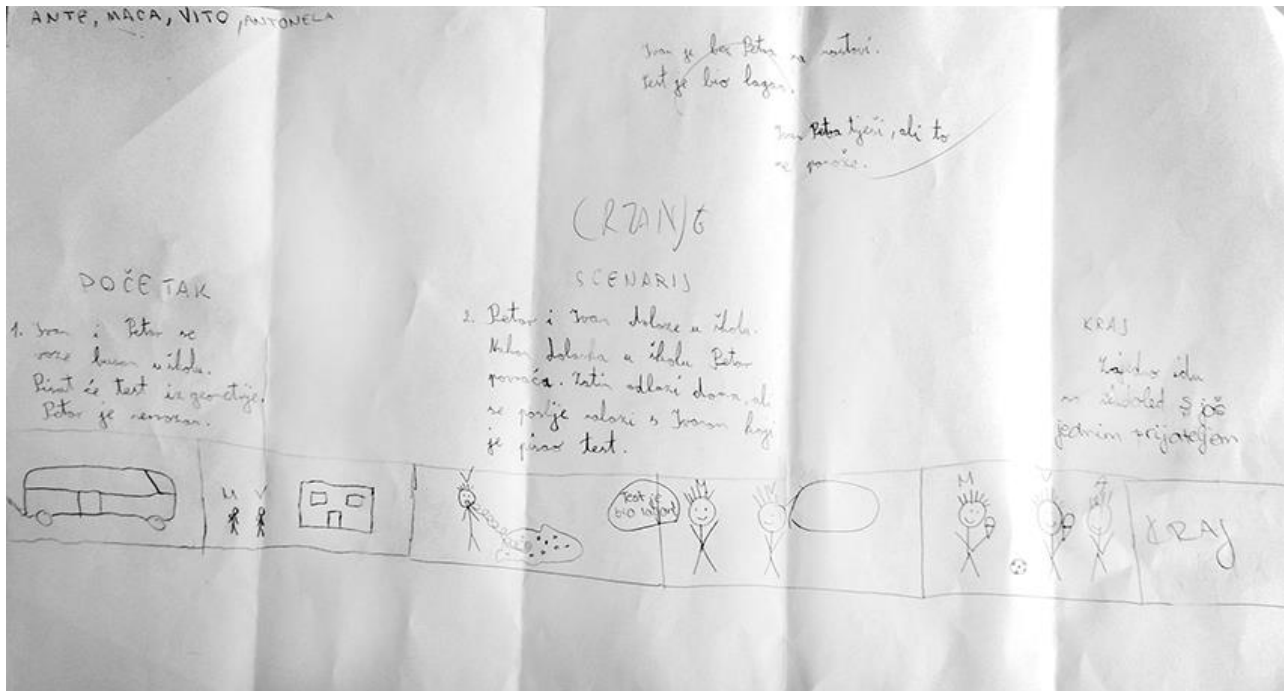 ANTE, MACA, VITO, ANTONELA
Ivan je bez Petra na nastavi.
Test je bio lagan.
Ivan Petra tješi, ali to
ne pomaže.
CRTANJE
POČETAK
1. Ivan i Petar se
voze busom u školu.
Pisat će test iz geometrije.
Petar je nervozan.
SCENARIJ
2. Petar i Ivan dolaze u školu.
Nakon dolaska u školu Petar
povraća. Zatim odlazi doma, ali
se poslje nalazi s Ivanom koji
je pisao test.
KRAJ
Zajedno idu
na sladoled s još
jednim prijateljem
M V
V
Test je
bio lagan
M V
M V
KRAJ